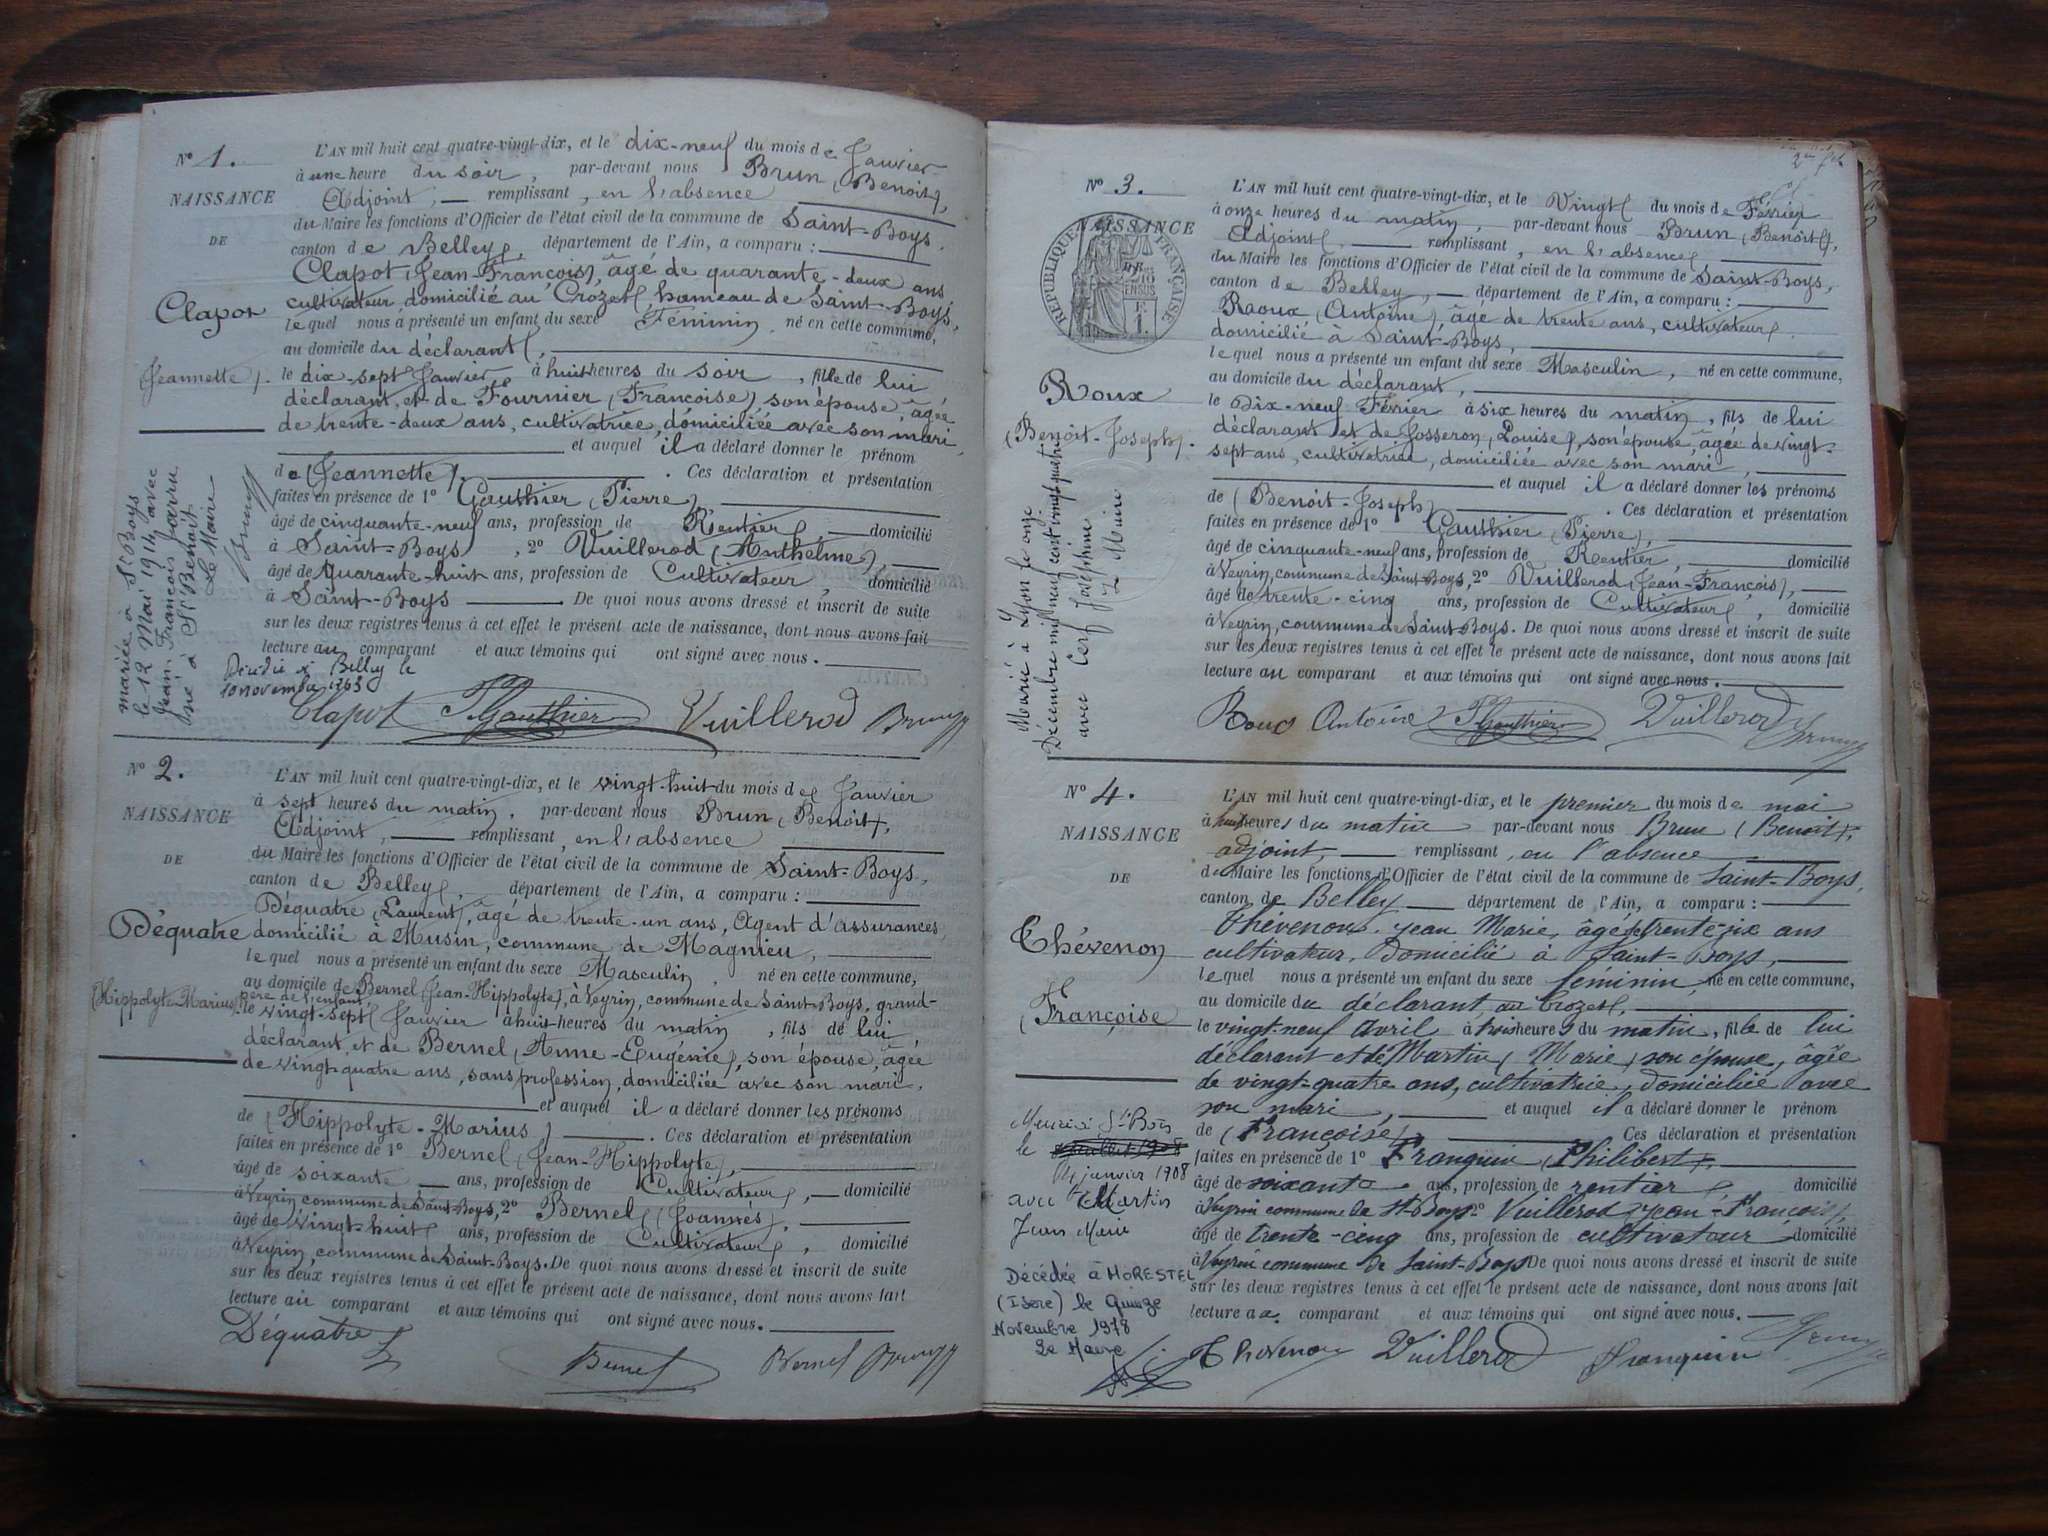 N° 1.
NAISSANCE
DE
Clapot
(Jeannette).
L'AN mil huit cent quatre-vingt-dix, et le dix-neuf du mois de Janvier
à une heure du soir, par-devant nous Brun (Benoit),
Adjoint, remplissant, en l'absence
du Maire les fonctions d'Officier de l'état civil de la commune de Saint-Boys,
canton de Belley, département de l'Ain, a comparu :
Clapot (Jean-François), âgé de quarante-deux ans
cultivateur, domicilié au Crozet, hameau de Saint-Boys,
lequel nous a présenté un enfant du sexe Féminin, né en cette commune,
au domicile du déclarant,
le dix-sept Janvier à huit heures du soir, fille de lui
déclarant, et de Fournier (Françoise) son épouse, âgée
de trente-deux ans, cultivatrice, domiciliée avec son mari,
et auquel il a déclaré donner le prénom
de (Jeannette). Ces déclaration et présentation
faites en présence de 1° Gauthier (Pierre),
âgé de cinquante-neuf ans, profession de Rentier, domicilié
à Saint-Boys, 2° Vuillerod (Anthelme),
âgé de Quarante-huit ans, profession de Cultivateur, domicilié
à Saint-Boys De quoi nous avons dressé et inscrit de suite
sur les deux registres tenus à cet effet le présent acte de naissance, dont nous avons fait
lecture au comparant et aux témoins qui ont signé avec nous.
mariée à St Boys
le 12 Mai 1914 avec
Jean François
né à St Benoit
Le Maire
Décédée à Belley le
10 novembre 1963
Clapot P Gauthier Vuillerod Brun
N° 2.
NAISSANCE
DE
Déquatre
(Hippolyte-Marius).
L'AN mil huit cent quatre-vingt-dix, et le vingt-huit du mois de Janvier
à sept heures du matin, par-devant nous Brun (Benoit),
Adjoint, remplissant, en l'absence
du Maire les fonctions d'Officier de l'état civil de la commune de Saint-Boys,
canton de Belley, département de l'Ain, a comparu :
Déquatre (Laurent), âgé de trente-un ans, Agent d'assurances,
domicilié à Musin, commune de Magnieu,
lequel nous a présenté un enfant du sexe Masculin, né en cette commune,
au domicile de Bernel (Jean-Hippolyte), à Veyrin, commune de Saint-Boys, grand-
père de l'enfant,
le vingt-sept Janvier à huit heures du matin, fils de lui
déclarant, et de Bernel (Anne-Eugénie), son épouse, âgée
de vingt-quatre ans, sans profession, domiciliée avec son mari,
et auquel il a déclaré donner les prénoms
de (Hippolyte-Marius). Ces déclaration et présentation
faites en présence de 1° Bernel (Jean-Hippolyte),
âgé de soixante ans, profession de Cultivateur, domicilié
à Veyrin commune de Saint-Boys, 2° Bernel (Joannès),
âgé de vingt-huit ans, profession de Cultivateur, domicilié
à Veyrin, commune de Saint-Boys. De quoi nous avons dressé et inscrit de suite
sur les deux registres tenus à cet effet le présent acte de naissance, dont nous avons fait
lecture au comparant et aux témoins qui ont signé avec nous.
Déquatre L Bernel Bernel Brun
N° 3.
NAISSANCE
DE
RÉPUBLIQUE FRANÇAISE
Roux
(Benoit-Joseph).
L'AN mil huit cent quatre-vingt-dix, et le Vingt du mois de Février
à onze heures du matin, par-devant nous Brun (Benoit),
Adjoint, remplissant, en l'absence
du Maire les fonctions d'Officier de l'état civil de la commune de Saint-Boys,
canton de Belley, département de l'Ain, a comparu :
Roux (Antoine), âgé de trente ans, cultivateur,
domicilié à Saint-Boys,
lequel nous a présenté un enfant du sexe Masculin, né en cette commune,
au domicile du déclarant,
le Dix-neuf Février à six heures du matin, fils de lui
déclarant et de Josseron (Louise), son épouse, âgée de vingt-
sept ans, cultivatrice, domiciliée avec son mari,
et auquel il a déclaré donner les prénoms
de (Benoit-Joseph). Ces déclaration et présentation
faites en présence de 1° Gauthier (Pierre),
âgé de cinquante-neuf ans, profession de Rentier, domicilié
à Veyrin, commune de Saint-Boys, 2° Vuillerod (Jean-François),
âgé de trente-cinq ans, profession de Cultivateur, domicilié
à Veyrin, commune de Saint-Boys. De quoi nous avons dressé et inscrit de suite
sur les deux registres tenus à cet effet le présent acte de naissance, dont nous avons fait
lecture au comparant et aux témoins qui ont signé avec nous.
Marié à Lyon le onze
Décembre mil neuf cent vingt quatre
avec Cerf Joséphine
Le Maire
Roux Antoine P Gauthier Vuillerod Brun
N° 4.
NAISSANCE
DE
Thévenon
(Françoise
L'AN mil huit cent quatre-vingt-dix, et le premier du mois de mai
à huit heures du matin par-devant nous Brun (Benoit),
adjoint, remplissant, en l'absence
du Maire les fonctions d'Officier de l'état civil de la commune de Saint-Boys,
canton de Belley département de l'Ain, a comparu :
Thévenon Jean Marie, âgé de trente-six ans
cultivateur, Domicilié à Saint-Boys,
lequel nous a présenté un enfant du sexe féminin, né en cette commune,
au domicile du déclarant, au Crozet,
le vingt-neuf avril à trois heures du matin, fille de lui
déclarant et de Martin (Marie) son épouse, âgée
de vingt-quatre ans, cultivatrice, domiciliée avec
son mari, et auquel il a déclaré donner le prénom
de (Françoise) Ces déclaration et présentation
faites en présence de 1° Franquin (Philibert),
âgé de soixante ans, profession de rentier, domicilié
à Veyrin commune de St-Boys 2° Vuillerod Jean-François,
âgé de trente-cinq ans, profession de cultivateur domicilié
à Veyrin commune de Saint-Boys De quoi nous avons dressé et inscrit de suite
sur les deux registres tenus à cet effet le présent acte de naissance, dont nous avons fait
lecture au comparant et aux témoins qui ont signé avec nous.
Mariée à St Bois
le
14 janvier 1908
avec Martin
Jean Marie
Décédée à MORESTEL
(Isère) le Quinze
Novembre 1978
Le Maire
Thévenon Vuillerod Franquin Brun